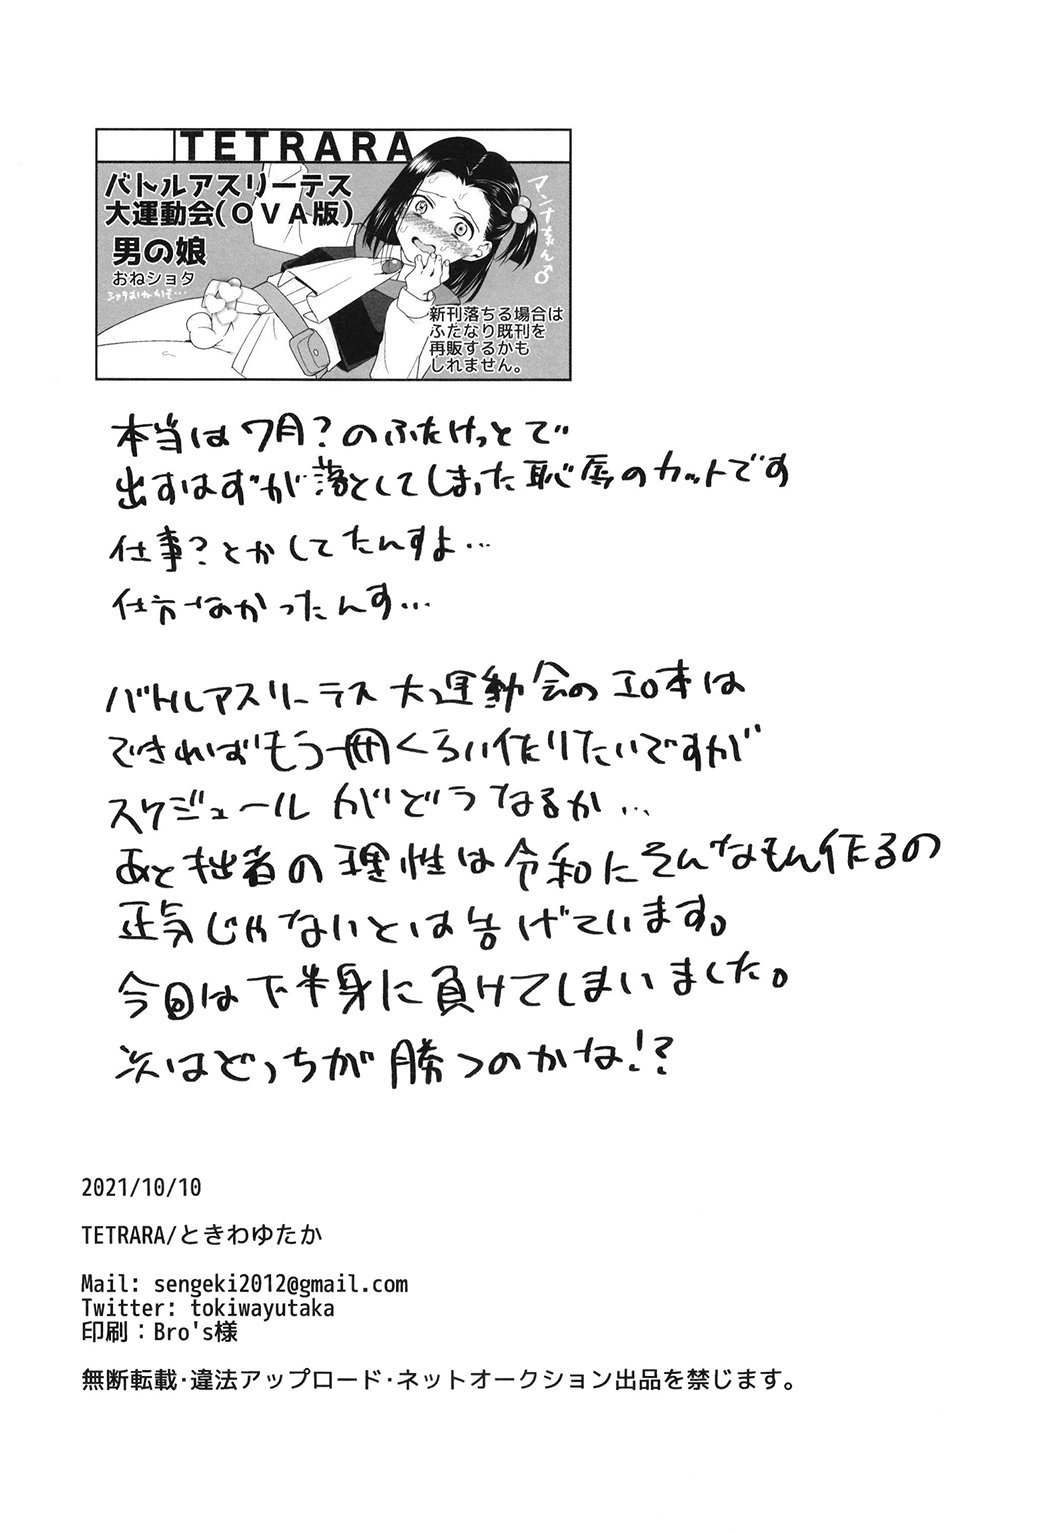 TETRARA
バトルアスリーテス
大運動会(OVA版)
男の娘
おねショタ
ショタおねかも…
アンナちゃん♂
新刊落ちる場合は
ふたなり既刊を
再販するかも
しれません。
本当は7月?のふたけっとで
出すはずが落としてしまった恥辱のカットです
仕事?とかしてたんすよ…
仕方なかったんす…
バトルアスリーテス大運動会のエロ本は
できればもう一冊くらい作りたいですが
スケジュールがどうなるか…
あと拙者の理性は令和にそんなもん作るの
正気じゃないとは告げています。
今回は下半身に負けてしまいました。
次はどっちが勝つのかな!?
2021/10/10
TETRARA/ときわゆたか
Mail: sengeki2012@gmail.com
Twitter: tokiwayutaka
印刷：Bro's様
無断転載･違法アップロード･ネットオークション出品を禁じます。